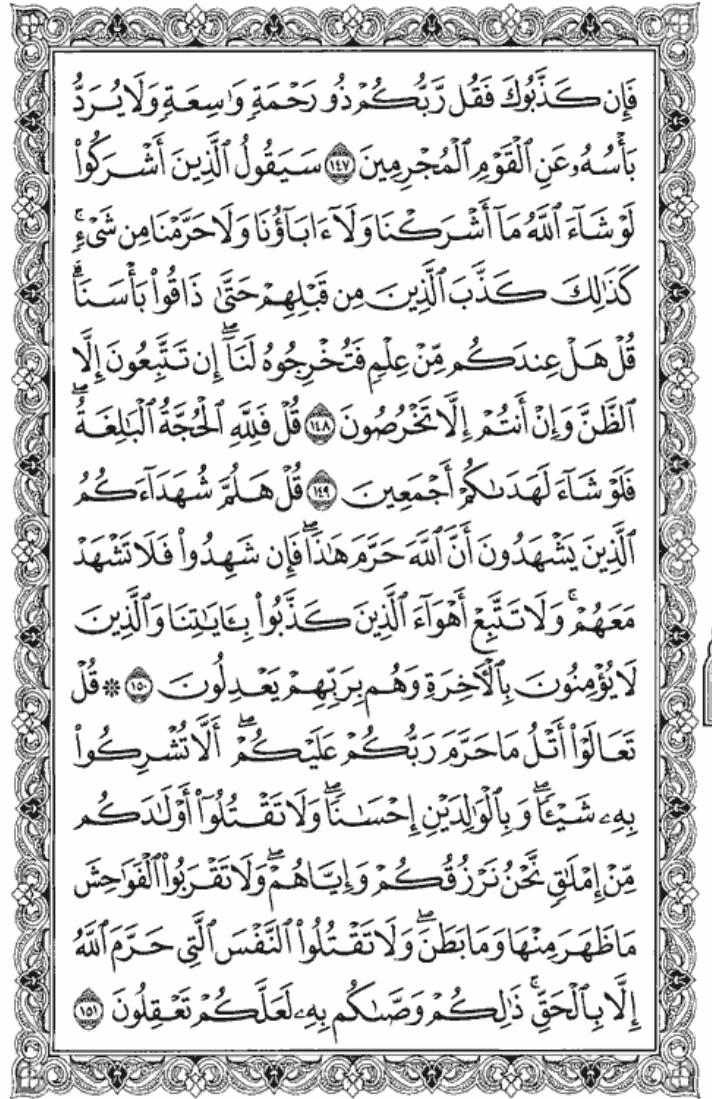 فَإِن كَذَّبُوكَ فَقُل رَّبُّكُمْ ذُو رَحْمَةٍ وَٰسِعَةٍ وَلَا يُرَدُّ
بَأْسُهُۥ عَنِ ٱلْقَوْمِ ٱلْمُجْرِمِينَ ١٤٧ سَيَقُولُ ٱلَّذِينَ أَشْرَكُوا۟
لَوْ شَآءَ ٱللَّهُ مَآ أَشْرَكْنَا وَلَآ ءَابَآؤُنَا وَلَا حَرَّمْنَا مِن شَىْءٍۚ
كَذَٰلِكَ كَذَّبَ ٱلَّذِينَ مِن قَبْلِهِمْ حَتَّىٰ ذَاقُوا۟ بَأْسَنَاۗ
قُلْ هَلْ عِندَكُم مِّنْ عِلْمٍ فَتُخْرِجُوهُ لَنَآۖ إِن تَتَّبِعُونَ إِلَّا
ٱلظَّنَّ وَإِنْ أَنتُمْ إِلَّا تَخْرُصُونَ ١٤٨ قُلْ فَلِلَّهِ ٱلْحُجَّةُ ٱلْبَٰلِغَةُۖ
فَلَوْ شَآءَ لَهَدَىٰكُمْ أَجْمَعِينَ ١٤٩ قُلْ هَلُمَّ شُهَدَآءَكُمُ
ٱلَّذِينَ يَشْهَدُونَ أَنَّ ٱللَّهَ حَرَّمَ هَٰذَاۖ فَإِن شَهِدُوا۟ فَلَا تَشْهَدْ
مَعَهُمْۚ وَلَا تَتَّبِعْ أَهْوَآءَ ٱلَّذِينَ كَذَّبُوا۟ بِـَٔايَٰتِنَا وَٱلَّذِينَ
لَا يُؤْمِنُونَ بِٱلْـَٔاخِرَةِ وَهُم بِرَبِّهِمْ يَعْدِلُونَ ١٥٠ ۞ قُلْ
تَعَالَوْا۟ أَتْلُ مَا حَرَّمَ رَبُّكُمْ عَلَيْكُمْۖ أَلَّا تُشْرِكُوا۟
بِهِۦ شَيْـًٔاۖ وَبِٱلْوَٰلِدَيْنِ إِحْسَٰنًاۖ وَلَا تَقْتُلُوٓا۟ أَوْلَٰدَكُم
مِّنْ إِمْلَٰقٍۖ نَّحْنُ نَرْزُقُكُمْ وَإِيَّاهُمْۖ وَلَا تَقْرَبُوا۟ ٱلْفَوَٰحِشَ
مَا ظَهَرَ مِنْهَا وَمَا بَطَنَۖ وَلَا تَقْتُلُوا۟ ٱلنَّفْسَ ٱلَّتِى حَرَّمَ ٱللَّهُ
إِلَّا بِٱلْحَقِّۚ ذَٰلِكُمْ وَصَّىٰكُم بِهِۦ لَعَلَّكُمْ تَعْقِلُونَ ١٥١